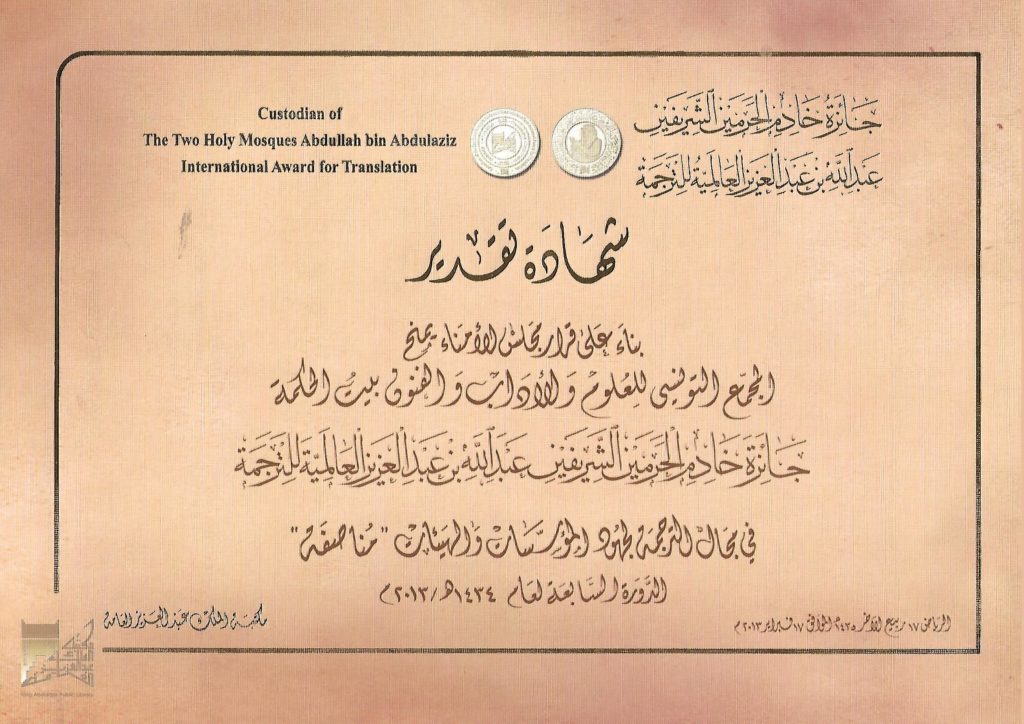 Custodian of
The Two Holy Mosques Abdullah bin Abdulaziz
International Award for Translation
جَائزة خَادم الحَرمَين الشَّريفَين
عَبدالله بن عَبدالعَزيز العَالميَّة للتَرجَمَة
شهَادَة تقدير
بناءً عَلى قرار مجَلس الأمنَاء يمنح
المجمّع التونسي للعُلوم وَالآداب وَالفنون بيتُ الحكمة
جَائزة خَادم الحَرمَين الشَّريفَين عَبدالله بن عَبدالعَزيز العَالميَّة للتَرجَمَة
في مجَال الترجَمة لجهُود المؤسّسَات وَالهيَئات "مُناصفَة"
الدَّورَة السَّابعَة لعَام ١٤٣٤هـ/٢٠١٣م
مكتبة الملك عَبدالعَزيز العَامة
الرياض ١٧ ربيع الآخر ١٤٣٥هـ الموافق ١٧ فبراير ٢٠١٣م
King Abdulaziz Public Library